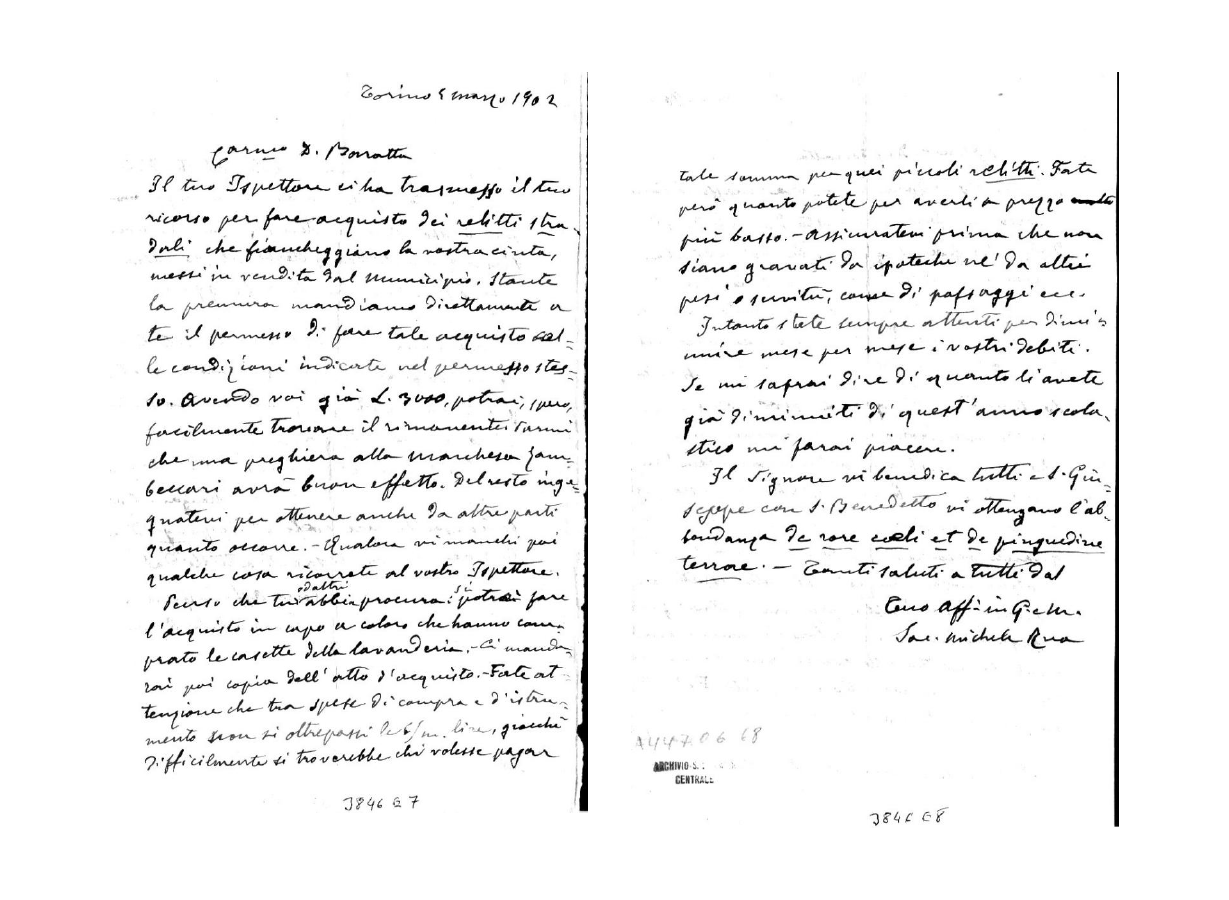 Torino 5 marzo 1902
Carmo D. Barratta
Il tuo Ispettore ci ha trasmesso il tuo
ricorso per fare acquisto dei relitti stra-
dali che fiancheggiano la vostra cinta,
messi in vendita dal Municipio. Stante
la premura mandiamo direttamente a
te il permesso di fare tale acquisto col-
le condizioni indicate nel permesso stes-
so. Avendo voi già L. 3000, potrai, spero,
facilmente trovare il rimanente:
che una preghiera alla marchesa Zam-
beccari avrà buon effetto. Del resto inge-
gnatevi per ottenere anche da altre parti
quanto occorre. - Qualora vi manchi poi
qualche cosa ricorrete al vostro Ispettore.
Penso che tu od altri abbia procura: si potrà fare
l'acquisto in capo a coloro che hanno com-
prato le casette della lavanderia. - Ci mande-
rai poi copia dell'atto d'acquisto. - Fate at-
tenzione che tra spese di compra e d'istru-
mento non si oltrepassi le 6/m. lire, giacchè
difficilmente si troverebbe chi volesse pagar
3846 E 7
tale somma per quei piccoli relitti. Fate
però quanto potete per averli a prezzo molto
più basso. - Assicuratevi prima che non
siano gravati da ipoteche nè da altri
pesi o servitù, come di passaggi ecc.
Intanto state sempre attenti per dimi-
nuire mese per mese i vostri debiti.
Se mi saprai dire di quanto li avete
già diminuiti di quest'anno scola-
stico mi farai piacere.
Il Signore vi benedica tutti e S. Giu-
seppe con S. Benedetto vi ottengano l'ab-
bondanza de rore coeli et de pinguedine
terrae. - Tanti saluti a tutti dal
Tuo Aff. in G. e M.
Sac. Michele Rua
A4470668
ARCHIVIO S.
CENTRALE
3846 E8